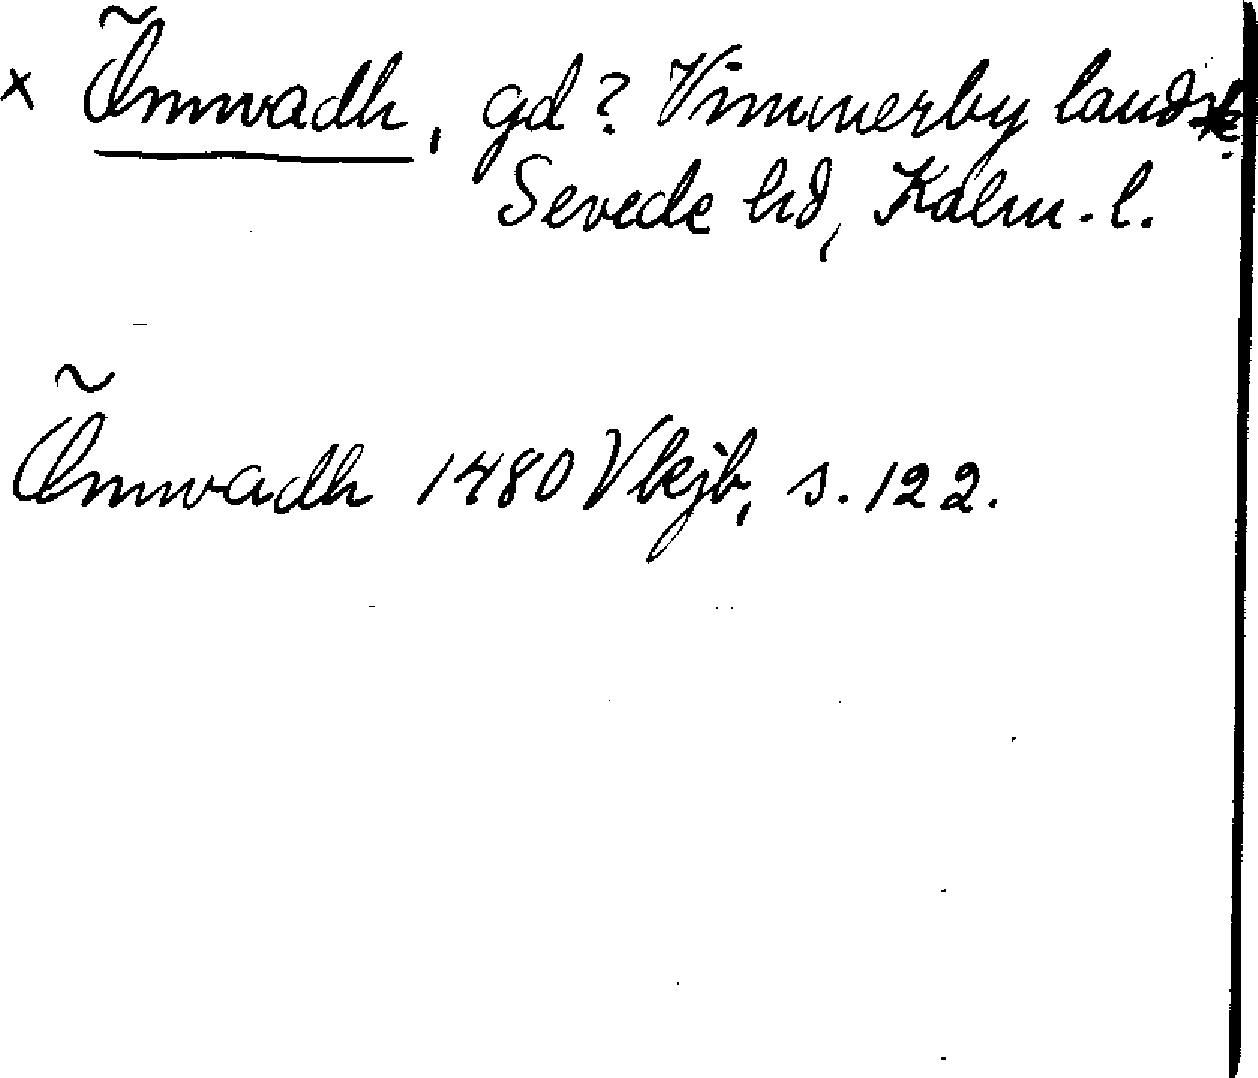 x Õmvadh, gd? Vimmerby landsk.
Sevede hd, Kalm. l.
Õmvadh 1480 Vkjb, s. 122.